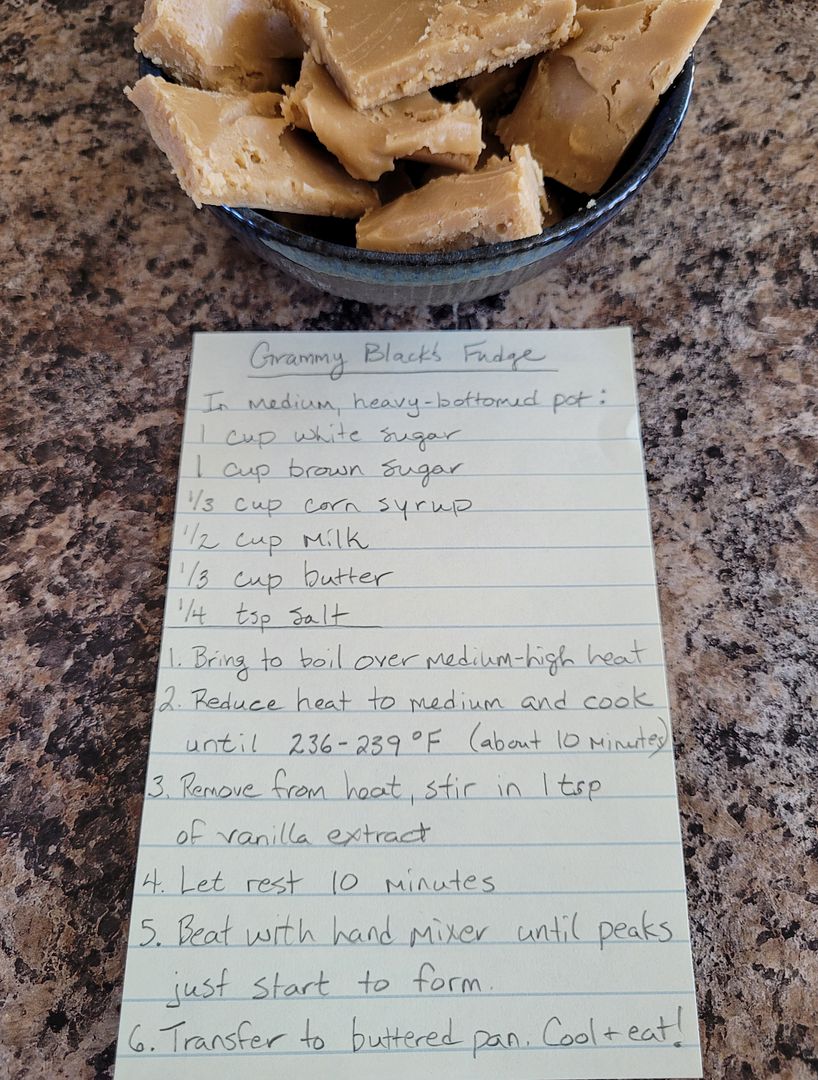 Grammy Black's Fudge
In medium, heavy-bottomed pot:
1 cup white sugar
1 cup brown sugar
1/3 cup corn syrup
1/2 cup milk
1/3 cup butter
1/4 tsp salt
1. Bring to boil over medium-high heat
2. Reduce heat to medium and cook
until 236-239 °F (about 10 minutes)
3. Remove from heat, stir in 1 tsp
of vanilla extract
4. Let rest 10 minutes
5. Beat with hand mixer until peaks
just start to form.
6. Transfer to buttered pan. Cool + eat!